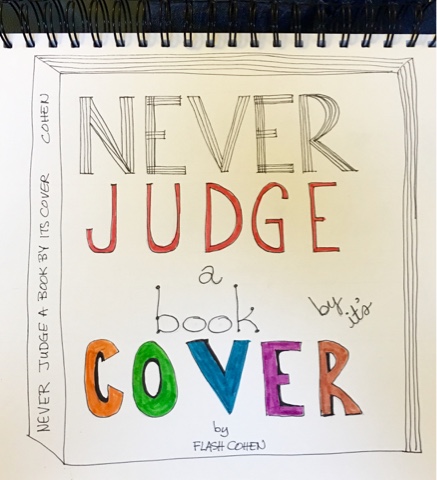 NEVER JUDGE A BOOK BY ITS COVER COHEN
NEVER
JUDGE
a
book
by it's
COVER
by
FLASH COHEN